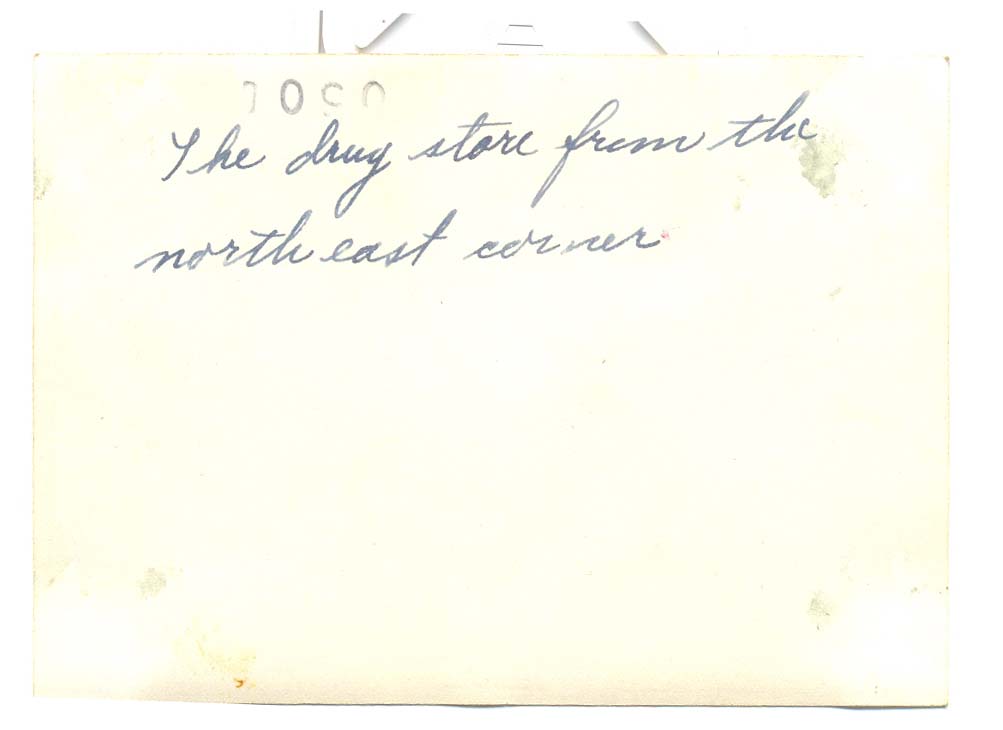 The drug store from the
north east corner